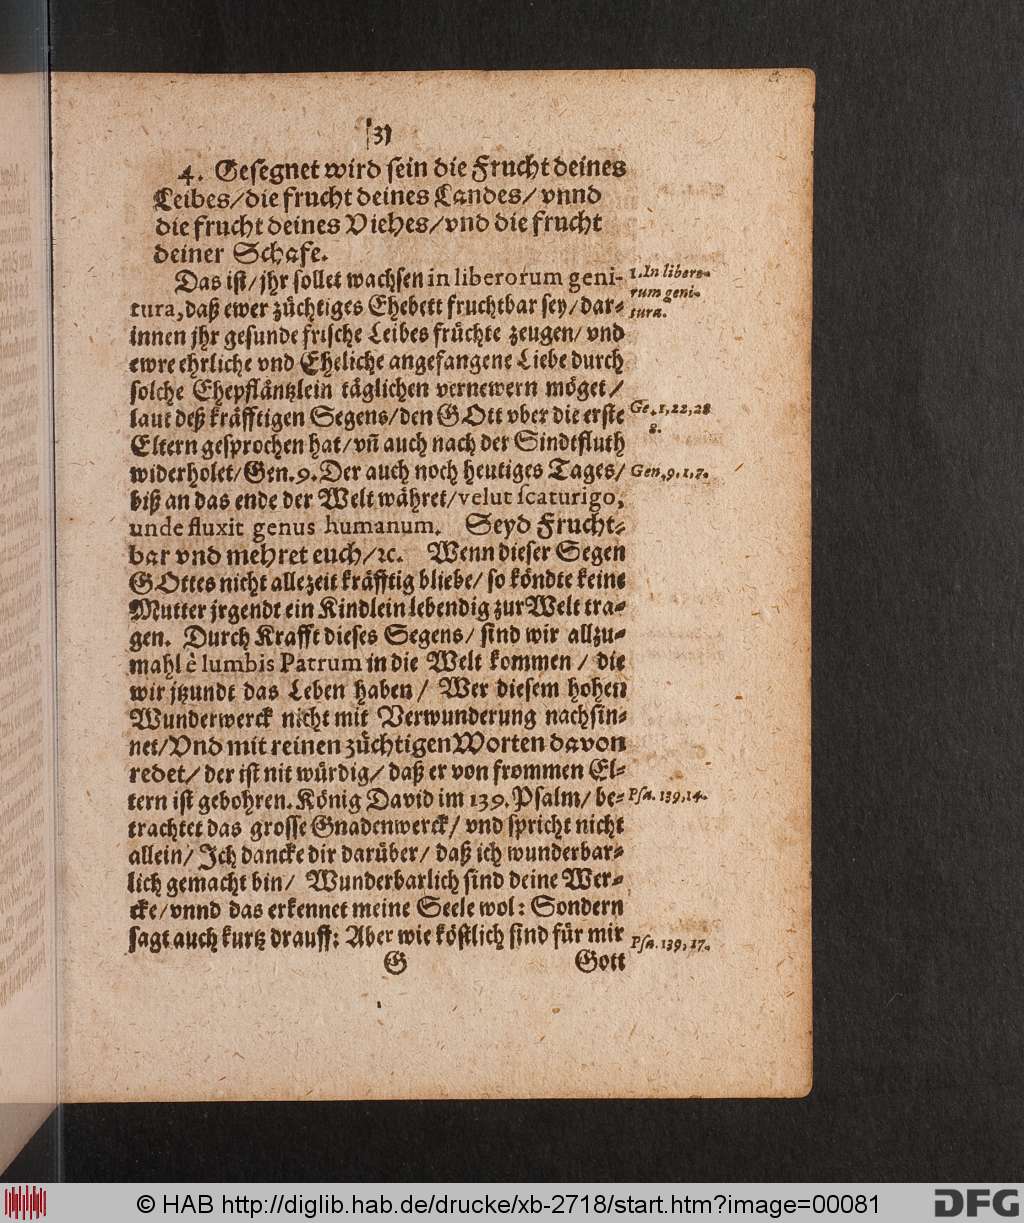 (3)
4. Gesegnet wird sein die Frucht deines
Leibes/die frucht deines Landes/ vnnd
die frucht deines Viehes/vnd die frucht
deiner Schafe.
Das ist/jhr sollet wachsen in liberorum geni- 1. In libero-
tura, daß ewer züchtiges Ehebett fruchtbar sey/dar- rum geni-
innen jhr gesunde frische Leibes früchte zeugen/ vnd tura.
ewre ehrliche vnd Eheliche angefangene Liebe durch
solche Ehepfläntzlein täglichen vernewern möget/
laut deß kräfftigen Segens/den GOtt vber die erste Ge. 1, 22, 28
Eltern gesprochen hat/vñ auch nach der Sindtfluth 8.
widerholet/Gen. 9. Der auch noch heutiges Tages/ Gen. 9. 1, 7.
biß an das ende der Welt währet/velut scaturigo,
unde fluxit genus humanum. Seyd Frucht-
bar vnd mehret euch/ꝛc. Wenn dieser Segen
GOttes nicht allezeit kräfftig bliebe/ so köndte keine
Mutter jrgendt ein Kindlein lebendig zur Welt tra-
gen. Durch Krafft dieses Segens/ sind wir allzu-
mahl è lumbis Patrum in die Welt kommen/ die
wir jtzundt das Leben haben/ Wer diesem hohen
Wunderwerck nicht mit Verwunderung nachsin-
net/Vnd mit reinen züchtigen Worten davon
redet/ der ist nit würdig/ daß er von frommen El-
tern ist gebohren. König David im 139. Psalm/ be- Psa. 139, 14.
trachtet das grosse Gnadenwerck/ vnd spricht nicht
allein/ Ich dancke dir darüber/ daß ich wunderbar-
lich gemacht bin/ Wunderbarlich sind deine Wer-
cke/vnnd das erkennet meine Seele wol: Sondern
sagt auch kurtz drauff: Aber wie köstlich sind für mir Psa. 139, 17.
G Gott
© HAB http://diglib.hab.de/drucke/xb-2718/start.htm?image=00081
DFG